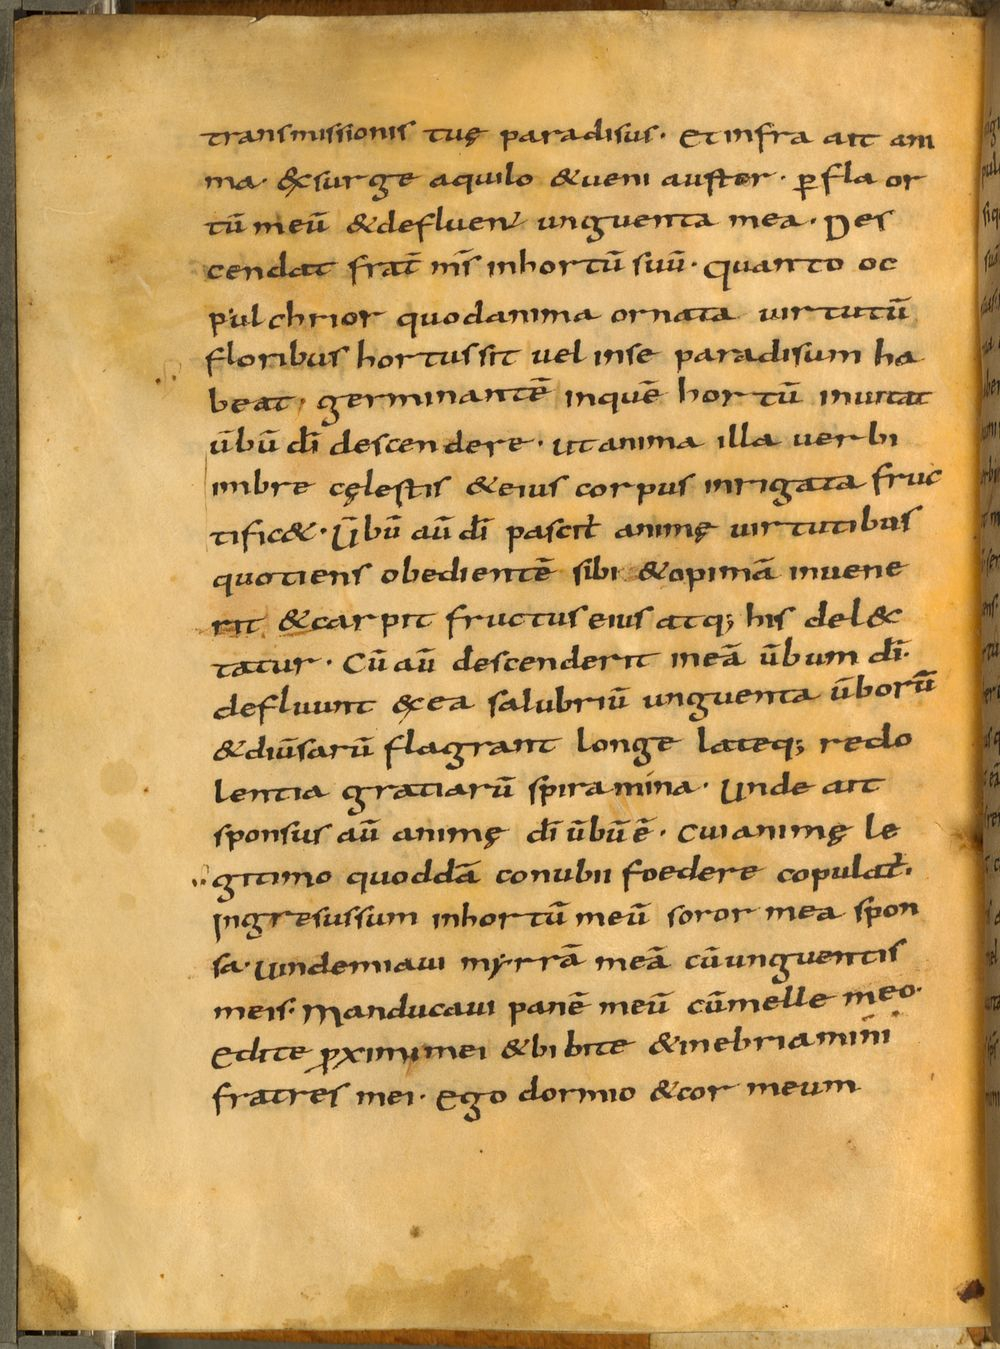 transmissionis tuę paradisus· Et infra ait ani
ma· &xsurge aquilo &ueni auster· ꝑfla or
tū meū &defluenť unguenta mea· Des
cendat frat̄ m̄s inhortū suū· Quanto oc
pulchrior quodanima ornata uirtutū
floribus hortus sit uel inse paradisum ha
beat· germinantē inquē hortū inuitat
ūbū dī descendere· ut anima illa uerbi
imbre cęlestis &eius corpus inrigata fruc
tific&· Ūbū aū dī pascit̄ animę uirtutibus
quotiens obedientē sibi &opimā inuene
rit &carpit fructus eius atq; his del&
tatur· Cū aū descenderit ineā ūbum dī·
defluunt &xea salubriū unguenta ūborū
&diūsarū flagrant longe lateq; redo
lentia gratiarū spiramina· Unde ait
sponsus aū animę dī ūbū ē· Cui animę le
gitimo quoddā conubii foedere copulat̄·
Ingresussum inhortū meū soror mea spon
sa· Uindemiaui myrrā meā cū unguentis
meis· Manducaui panē meū cū melle meo·
Edite ꝓximi mei &bibite &inebriamini
fratres mei· Ego dormio &cor meum